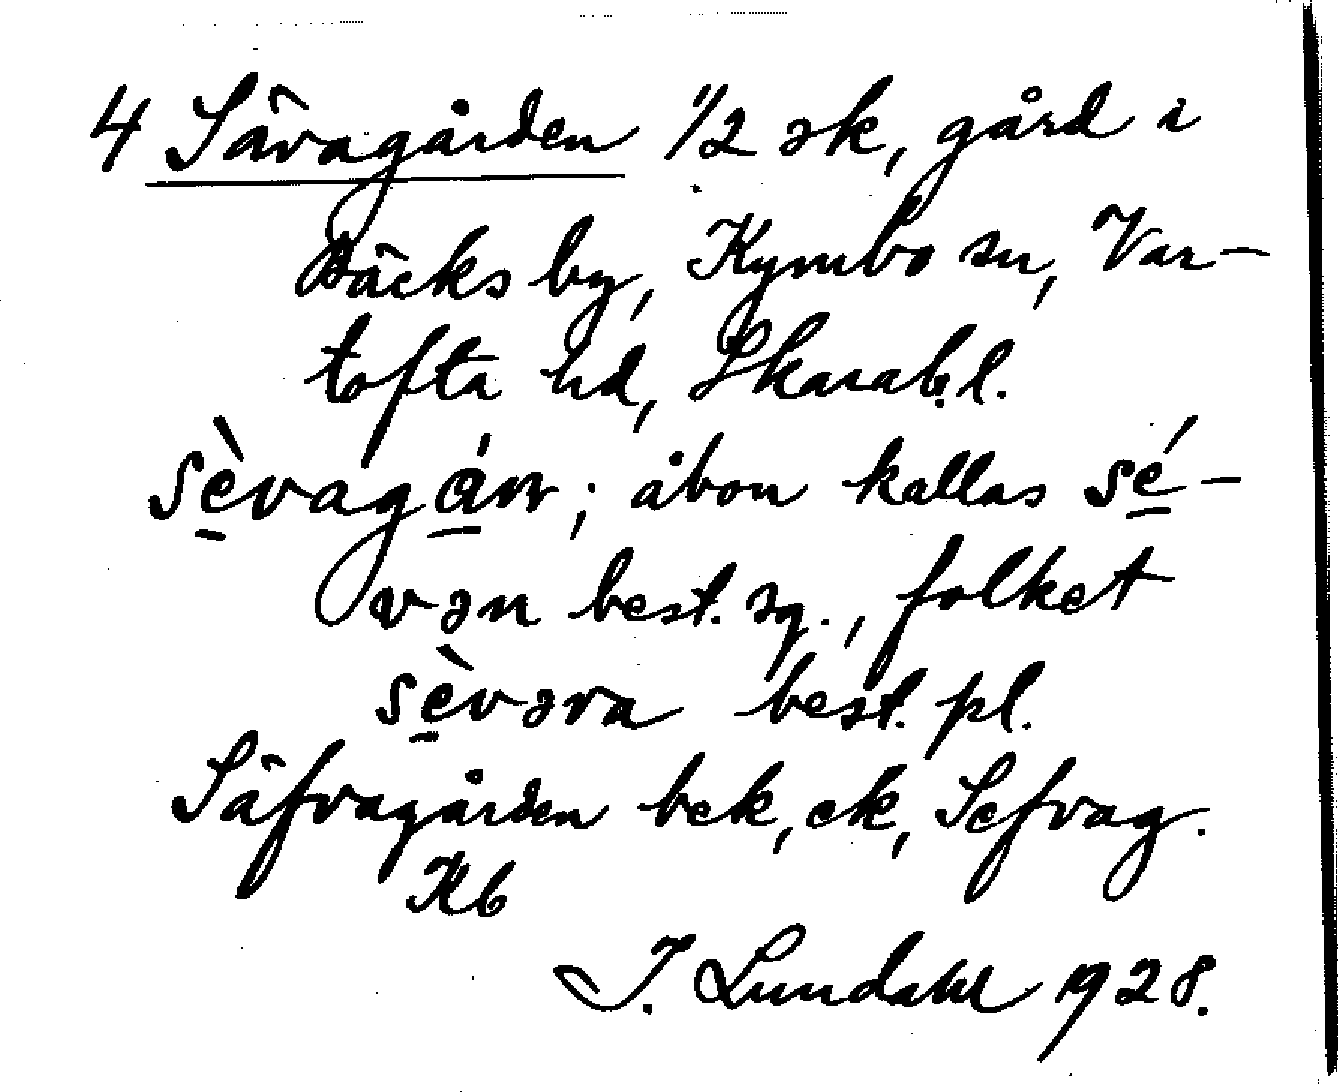 4 Sävagården 1/2 sk, gård i
Bäcks by, Kymbo sn, Var-
tofta hd, Skarab. l.
sè̱vagá̱rn; åbon kallas sé̱-
vən best. sg., folket
sè̱vəra best. pl.
Säfvagården bek, ek, Sefvag.
Kb
I. Lundahl 1928.